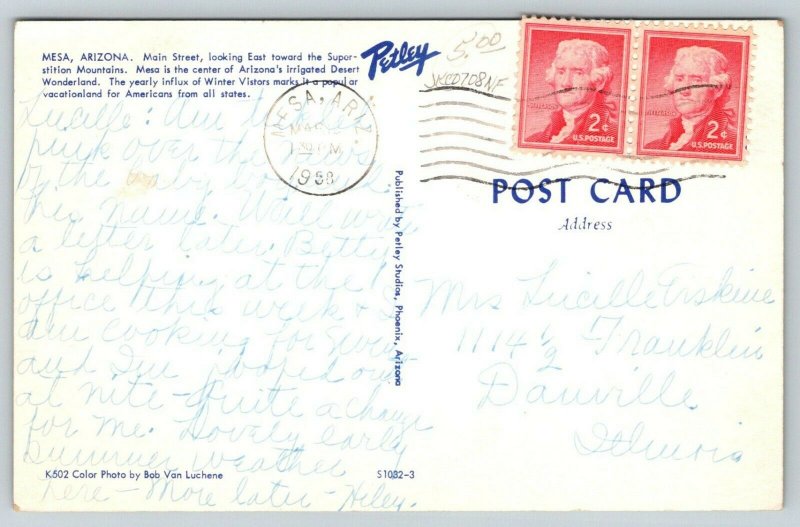 MESA, ARIZONA. Main Street, looking East toward the Super-
stition Mountains. Mesa is the center of Arizona's irrigated Desert
Wonderland. The yearly influx of Winter Vistors marks it a popular
vacationland for Americans from all states.
Petley
5.00
JKCO708NF
MESA, ARIZ.
MAR
PM
1958
2¢
U.S. POSTAGE
2¢
U.S. POSTAGE
POST CARD
Address
Lucille: Am tickled
pink over the news
of the baby
her name. Will write
a letter later. Betty
is helping at the
office this week &
am cooking for
and I'm pooped out
at nite - Quite a change
for me. Lovely early
summer weather
here - More later -
Published by Petley Studios, Phoenix, Arizona
Mrs Lucille Erskine
1114 1/2 Franklin
Danville
Illinois
K502 Color Photo by Bob Van Luchene
S1032-3